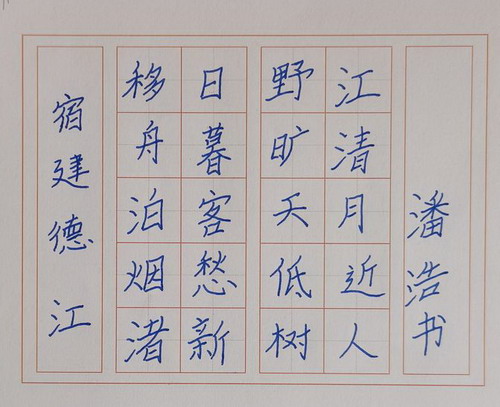 宿建德江
移舟泊烟渚
日暮客愁新
野旷天低树
江清月近人
潘浩书